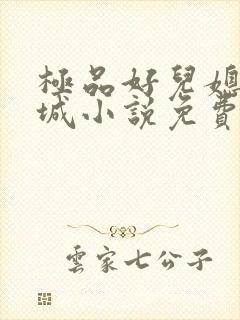 極品好兒媳
城小說免費
雲家七公子